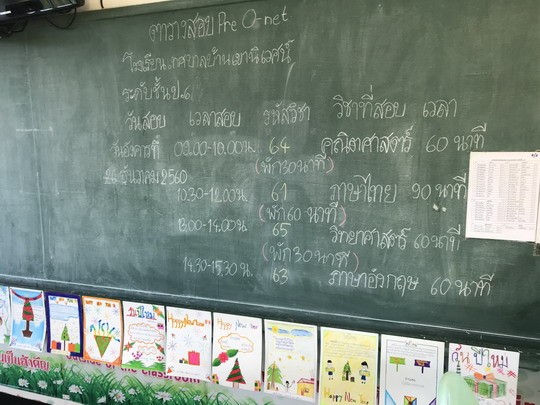 ตารางสอบ Pre O-net
โรงเรียนเทศบาลบ้านเขานิเวศน์
ระดับชั้น ป.6
วันสอบ เวลาสอบ รหัสวิชา วิชาที่สอบ เวลา
วันอังคารที่ 09.00-10.00น. 64 คณิตศาสตร์ 60 นาที
(พัก 30 นาที)
26 ธันวาคม 2560
10.30-12.00น. 61 ภาษาไทย 90 นาที
(พัก 60 นาที)
13.00-14.00น. 65 วิทยาศาสตร์ 60 นาที
(พัก 30 นาที)
14.30-15.30 น. 63 ภาษาอังกฤษ 60 นาที
Happy New Year
Happy New Year
วันปีใหม่
Happy New Year
of the classroom